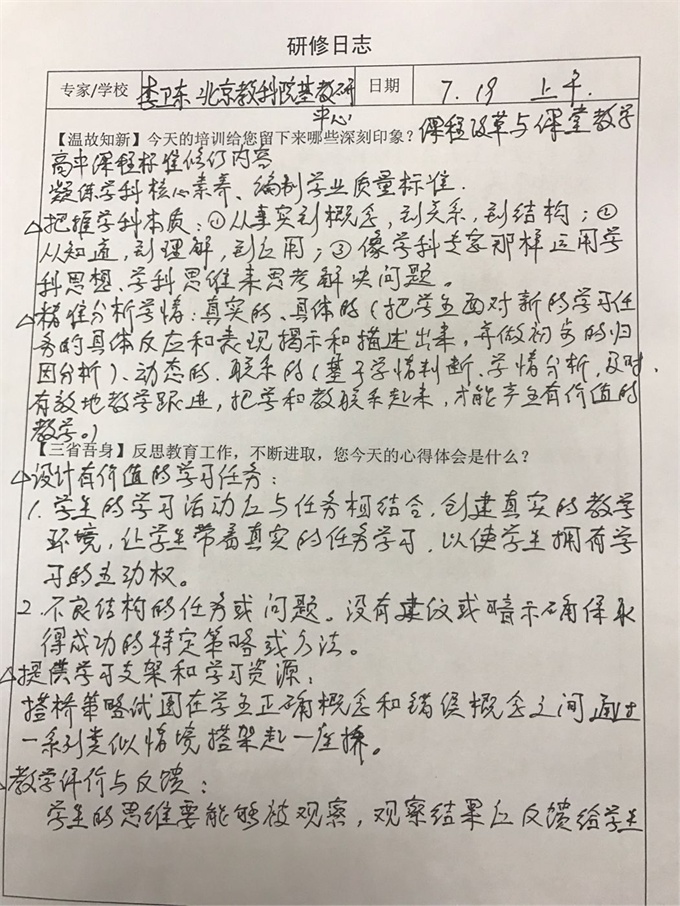 研修日志
专家/学校 李卫东 北京教科院基教研中心 日期 7.19 上午.
【温故知新】今天的培训给您留下来哪些深刻印象？ 课程改革与课堂教学
高中课程标准修订内容
凝练学科核心素养、编制学业质量标准.
△把握学科本质：①从事实到概念，到关系，到结构；②
从知道，到理解，到应用；③像学科专家那样运用学
科思想、学科思维来思考解决问题。
△精准分析学情：真实的、具体的（把学生面对新的学习任
务的具体反应和表现揭示和描述出来，并做初步的归
因分析）、动态的、联系的（基于学情判断、学情分析，及时、
有效地教学跟进，把学和教联系起来，才能产生有价值的
教学。）
【三省吾身】反思教育工作，不断进取，您今天的心得体会是什么？
△设计有价值的学习任务：
1.学生的学习活动应与任务相结合，创建真实的教学
环境，让学生带着真实的任务学习，以使学生拥有学
习的主动权。
2.不良结构的任务或问题。没有建议或暗示确保取
得成功的特定策略或方法。
△提供学习支架和学习资源：
搭桥策略试图在学生正确概念和错误概念之间通过
一系列类似情境搭架起一座桥。
△教学评价与反馈：
学生的思维要能够被观察，观察结果应反馈给学生